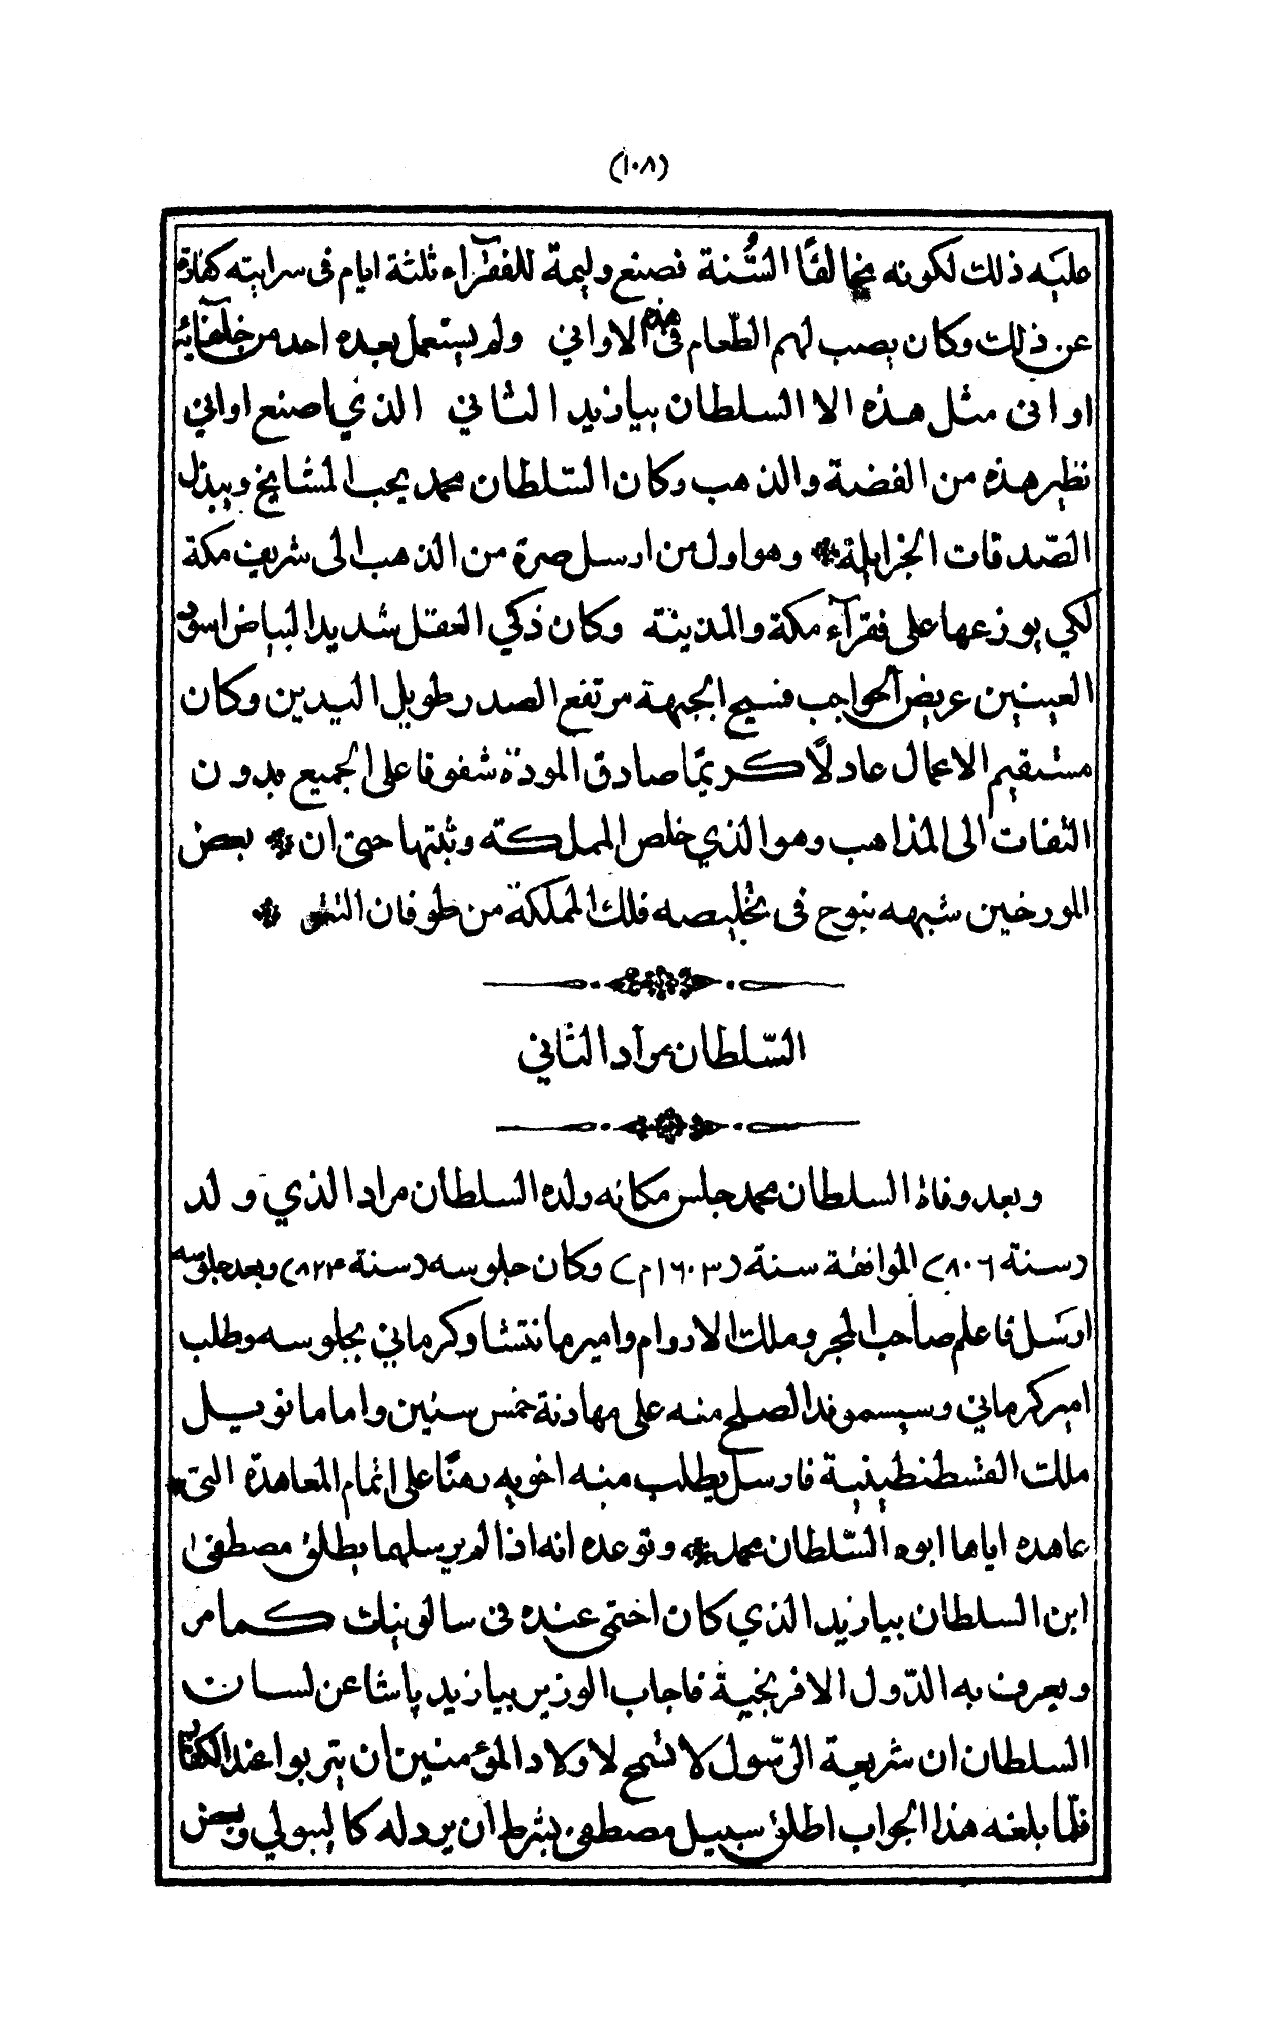 (١٠٨)
عليه ذلك لكونه مخالفًا السُّنة فصنع وليمة للفقرآء ثلثة ايام فى سرايته كفارة
عن ذلك وكان يصب لهم الطّعام فى هذه الاواني ولم يستعمل بعده احد من خلفائه
اوانى مثل هذه الا السلطان بيازيد الثاني الذي اصنع اواني
نظير هذه من الفضة والذهب وكان السّلطان محمد يحب المشايخ ويبذل
الصّدقات الجزايلة * وهو اول من ارسل صرة من الذهب الى شريف مكة
لكي يوزعها على فقرآء مكة والمدينة وكان ذكي العقل شديد البياض اسود
العينين عريض الحواجب فسيح الجبهة مرتفع الصدر طويل اليدين وكان
مستقيم الاعمال عادلًا كريمًا صادق المودة شفوقا على الجميع بدون
التفات الى المذاهب وهو الذي خلص المملكته وثبتها حتى ان * بعض
المورخين شبهه بنوح فى تخليصه فلك المملكة من طوفان التتر *
السّلطان مرآد الثاني
وبعد وفاة السلطان محمد جلس مكانه ولده السلطان مراد الذي ولد
(سنة ٨٠٦) الموافقة سنة (١٦٠٣م) وكان جلوسه (سنة ٨٢٤) وبعد جلوسه
ارسل فاعلم صاحب المجر وملك الاروام وامير مانتشا وكرماني بجلوسه وطلب
امير كرماني وسيسموند الصلح منه على مهادنة خمس سنين واما مانويل
ملك القسطنطينية فارسل يطلب منه اخويه رهنًا على اتمام المعاهدة التى
عاهده اياها ابوه السّلطان محمد * وتوعده انه اذا لم يرسلهما يطلق مصطفى
ابن السلطان بيازيد الذي كان اختمى عنده فى سالونيك كما مر
ويعرف به الدّول الافرنجية فاجاب الوزير بيازيد پاشا عن لسان
السلطان ان شريعة الرسول لا تسمح لاولاد المؤمنين ان يتربوا عند الكفار
فلّما بلغه هذا الجواب اطلق سبيل مصطفى بشرط ان يرد له كاليبولي وبعض